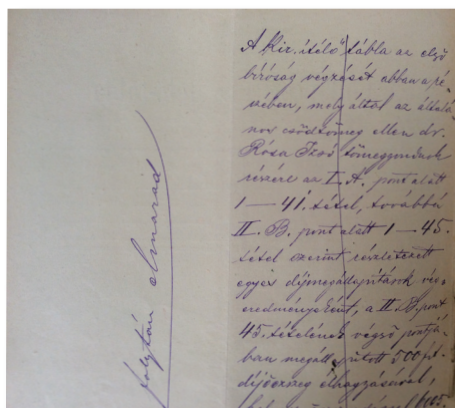 folytán elmarad
A kir. itélő tábla az első
biróság végzését abban a ré-
szében, mely által az általá
nos csődtömeg ellen dr.
Rósa Izsó tömeggondnok
részére az I. A. pont alatt
1 — 41. tétel, továbbá
II. B. pont alatt 1 — 45.
tétel szerint részletezett
egyes díjmegállapitások vég-
eredményeként, a II. B. pont
45. tételének végső pontjá-
ban megállapitott 500 frt.
díjösszeg elhagyásával,